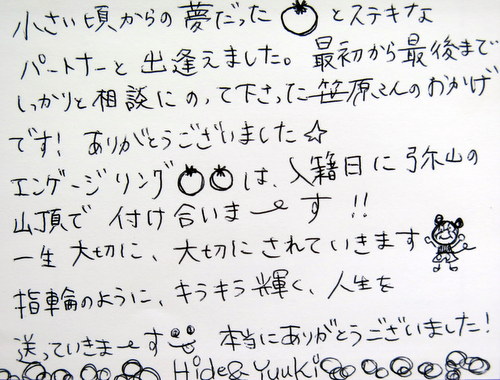 小さい頃からの夢だった とステキな
パートナーと出逢えました。最初から最後まで
しっかりと相談にのって下さった笹原さんのおかげ
です！ありがとうございました☆
エンゲージリング は、入籍日に弥山の
山頂で付け合いまーす!!
一生大切に、大切にされていきます
指輪のように、キラキラ輝く、人生を
送っていきまーす 本当にありがとうございました！
Hide&Yuuki